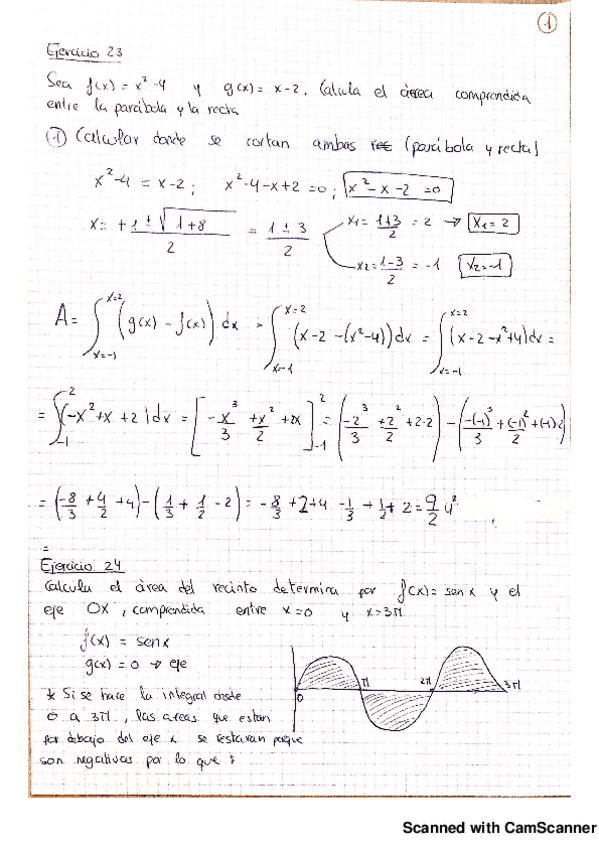 1
Ejercicio 23
Sea f(x) = x² - 4 y g(x) = x - 2. Calcula el área comprendida
entre la parábola y la recta
① Calcular donde se cortan ambas (parábola y recta)
x² - 4 = x - 2 ; x² - 4 - x + 2 = 0 ; x² - x - 2 = 0
x = +1 ± √(1+8) / 2 = 1 ± 3 / 2
x₁ = 1+3 / 2 = 2 → x₁ = 2
x₂ = 1-3 / 2 = -1 x₂ = -1
A = ∫_{x=-1}^{x=2} (g(x) - f(x)) dx = ∫_{x=-1}^{x=2} (x - 2 - (x² - 4)) dx = ∫_{x=-1}^{x=2} (x - 2 - x² + 4) dx =
= ∫_{-1}^{2} (-x² + x + 2) dx = [-x³/3 + x²/2 + 2x]_{-1}^{2} = (-2³/3 + 2²/2 + 2·2) - (-(-1)³/3 + (-1)²/2 + (-1)2)
= (-8/3 + 4/2 + 4) - (1/3 + 1/2 - 2) = -8/3 + 2 + 4 - 1/3 + 1/2 + 2 = 9/2 u²
=
Ejercicio 24
Calcula el área del recinto determina por f(x) = sen x y el
eje OX, comprendida entre x = 0 y x = 3π
f(x) = sen x
g(x) = 0 → eje
* Si se hace la integral desde
0 a 3π, las areas que estan
por debajo del eje x se restaran porque
son negativas por lo que :
0 π 2π 3π
Scanned with CamScanner